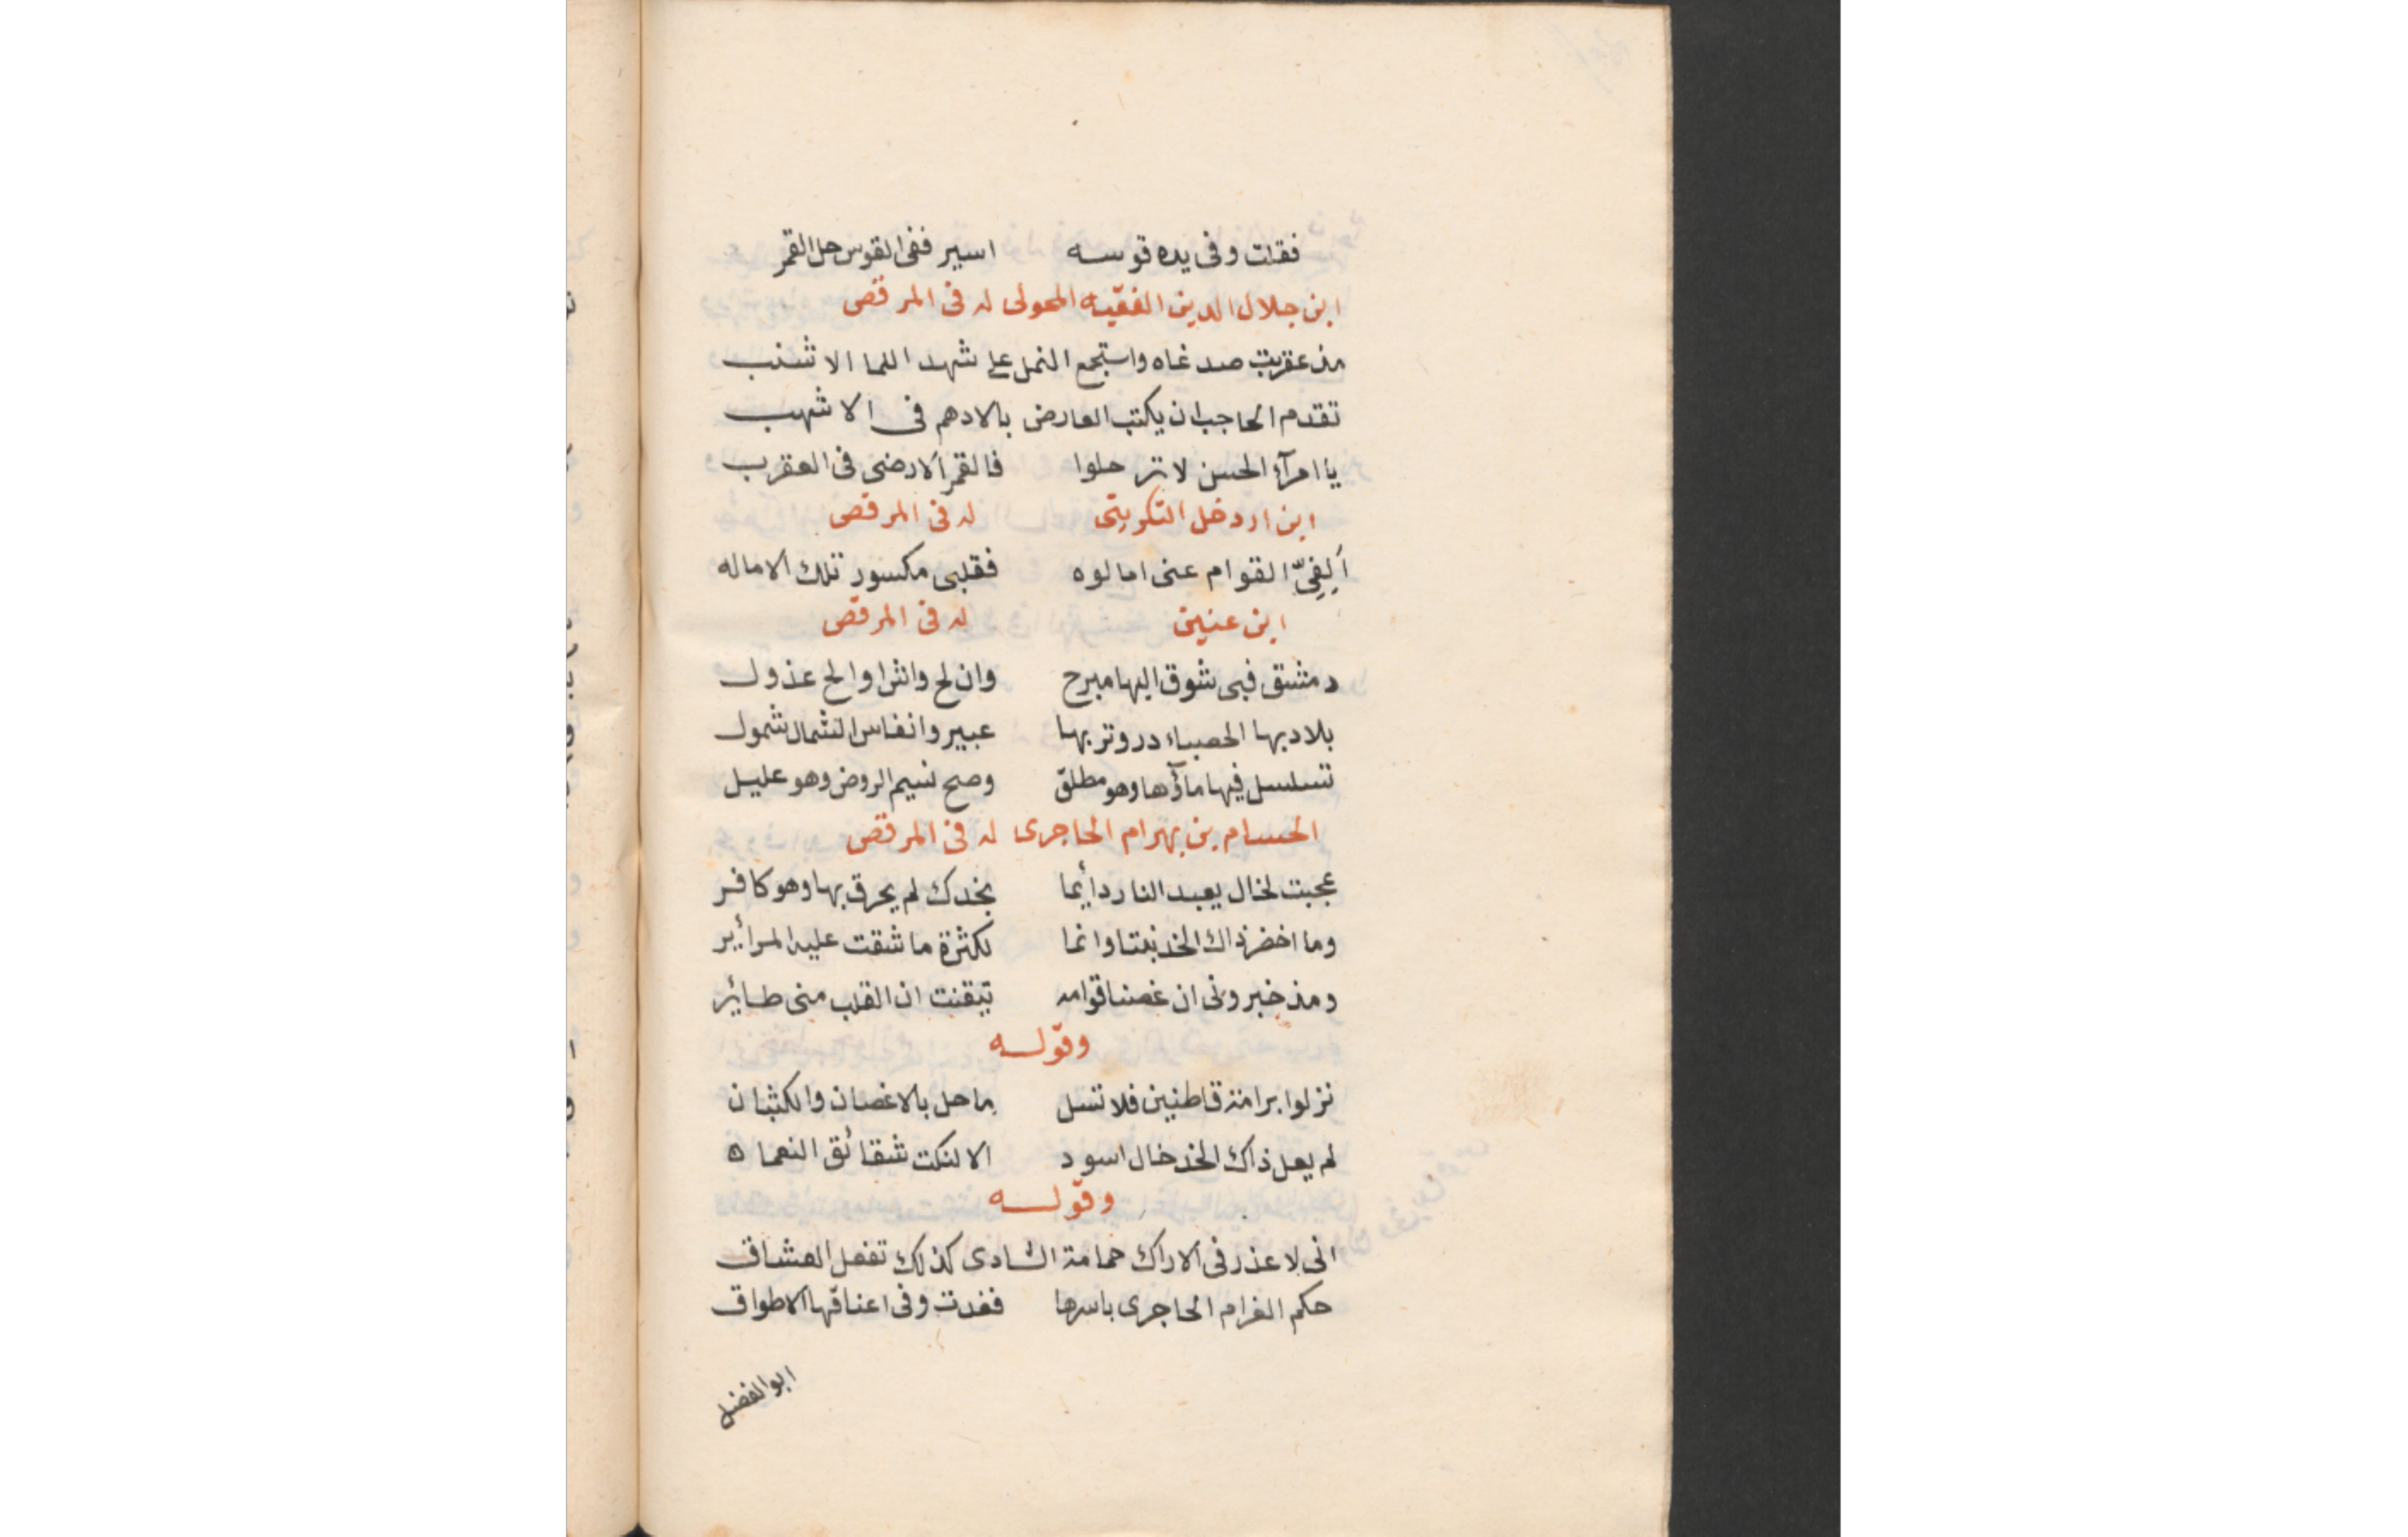 فقلت وفى يده قوسه اسير ففى القوس حل القمر
ابن جلال الدين الفقيه المحولى له فى المرقص
مذ عقربت صدغاه واستجمع النمل على شهد اللما الاشنب
تقدم الحاجب ان يكتب العارض بالادهم فى الاشهب
يا امرآء الحسن لا ترحلوا فالقمر الارضى فى العقرب
ابن اردخل التكريتى له فى المرقص
أَلِفِىّ القوام عنى امالوه فقلبى مكسور تلك الاماله
ابن عنين له فى المرقص
دمشق فبى شوق اليها مبرح وان لح واش او الح عذول
بلاد بها الحصباء در وتربها عبير وانفاس الشمال شمول
تسلسل فيها مآؤها وهو مطلق وصح نسيم الروض وهو عليل
الحسام بن بهرام الحاجرى له فى المرقص
عجبت لخال يعبد النار دائما بخدك لم يحرق بها وهو كافر
وما اخضر ذاك الخد نبتا وانما لكثرة ما شقت عليه المرائر
ومذ خبرونى ان غصنا قوامه تيقنت ان القلب منى طائر
وقوله
نزلوا برامة قاطنين فلا تسل ما حل بالاغصان والكثبان
لم يعل ذاك الخد خال اسود الا لنكت شقائق النعمان
وقوله
انى لاعذر فى الاراك حمامة الشادى كذلك تفعل العشاق
حكم الغرام الحاجرى باسرها فغدت وفى اعناقها الاطواق
ابو الفضل